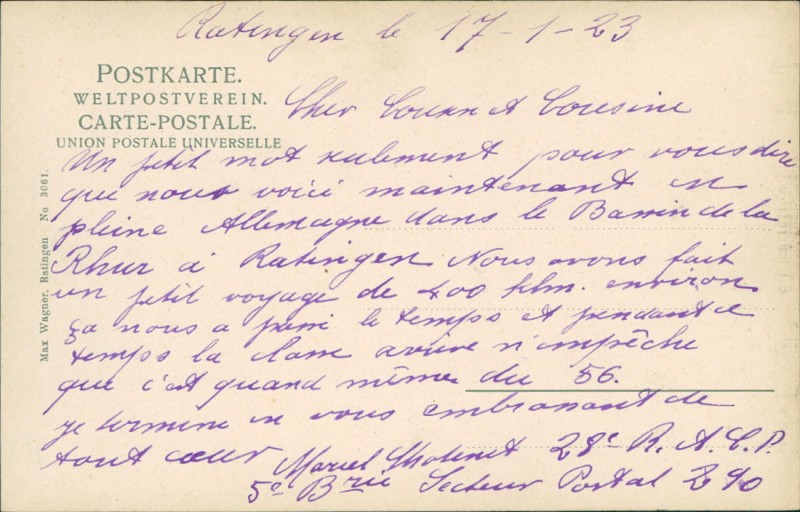 Ratingen le 17-1-23
POSTKARTE.
WELTPOSTVEREIN.
CARTE-POSTALE.
UNION POSTALE UNIVERSELLE
Max Wagner, Ratingen No 3061.
Cher Cousin et Cousine
Un petit mot seulement pour vous dire
que nous voici maintenant en
pleine Allemagne dans le Bassin de la
Rhur à Ratingen Nous avons fait
un petit voyage de 400 klm. environ
ça nous a passé le temps et pendant ce
temps la classe arrive n'empêche
que c'est quand même du 56.
je termine en vous embrassant de
tout cœur
Marcel 28e R.A.C.P.
5e Brie Secteur Postal 290